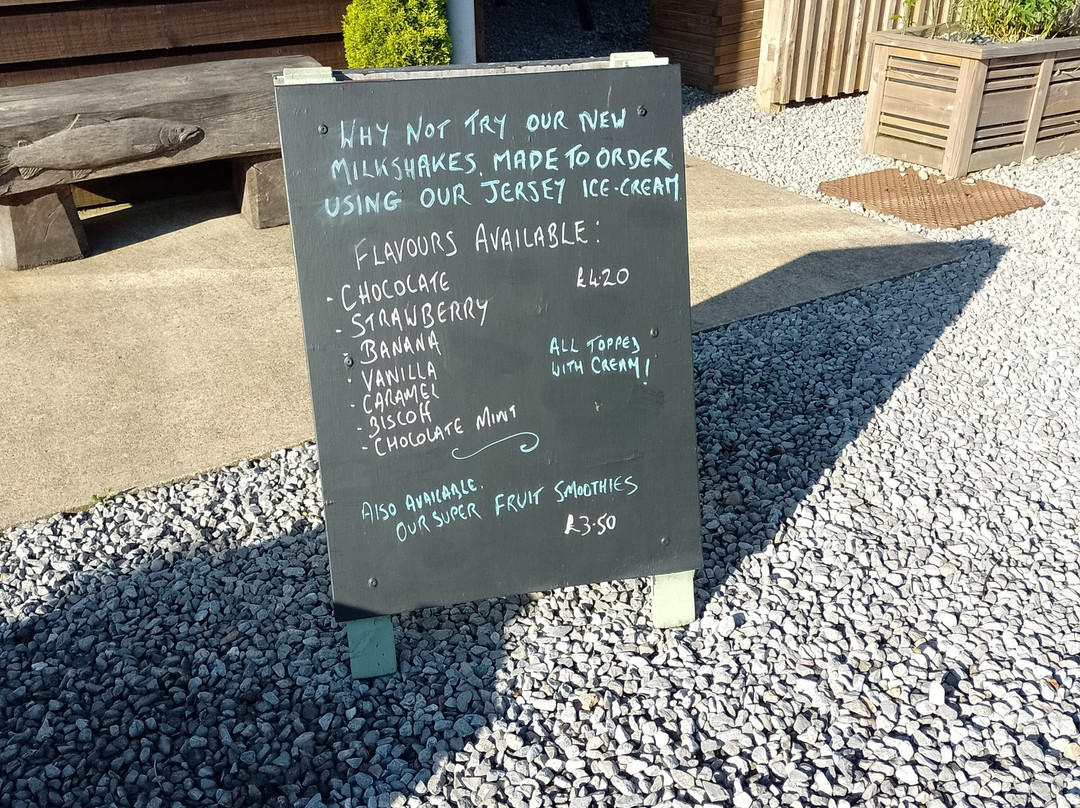 WHY NOT TRY OUR NEW
MILKSHAKES. MADE TO ORDER
USING OUR JERSEY ICE-CREAM
FLAVOURS AVAILABLE:
- CHOCOLATE £4.20
- STRAWBERRY
- BANANA
- VANILLA
- CARAMEL
- BISCOFF
- CHOCOLATE MINT
ALL TOPPED
WITH CREAM!
ALSO AVAILABLE.
OUR SUPER FRUIT SMOOTHIES
£3.50